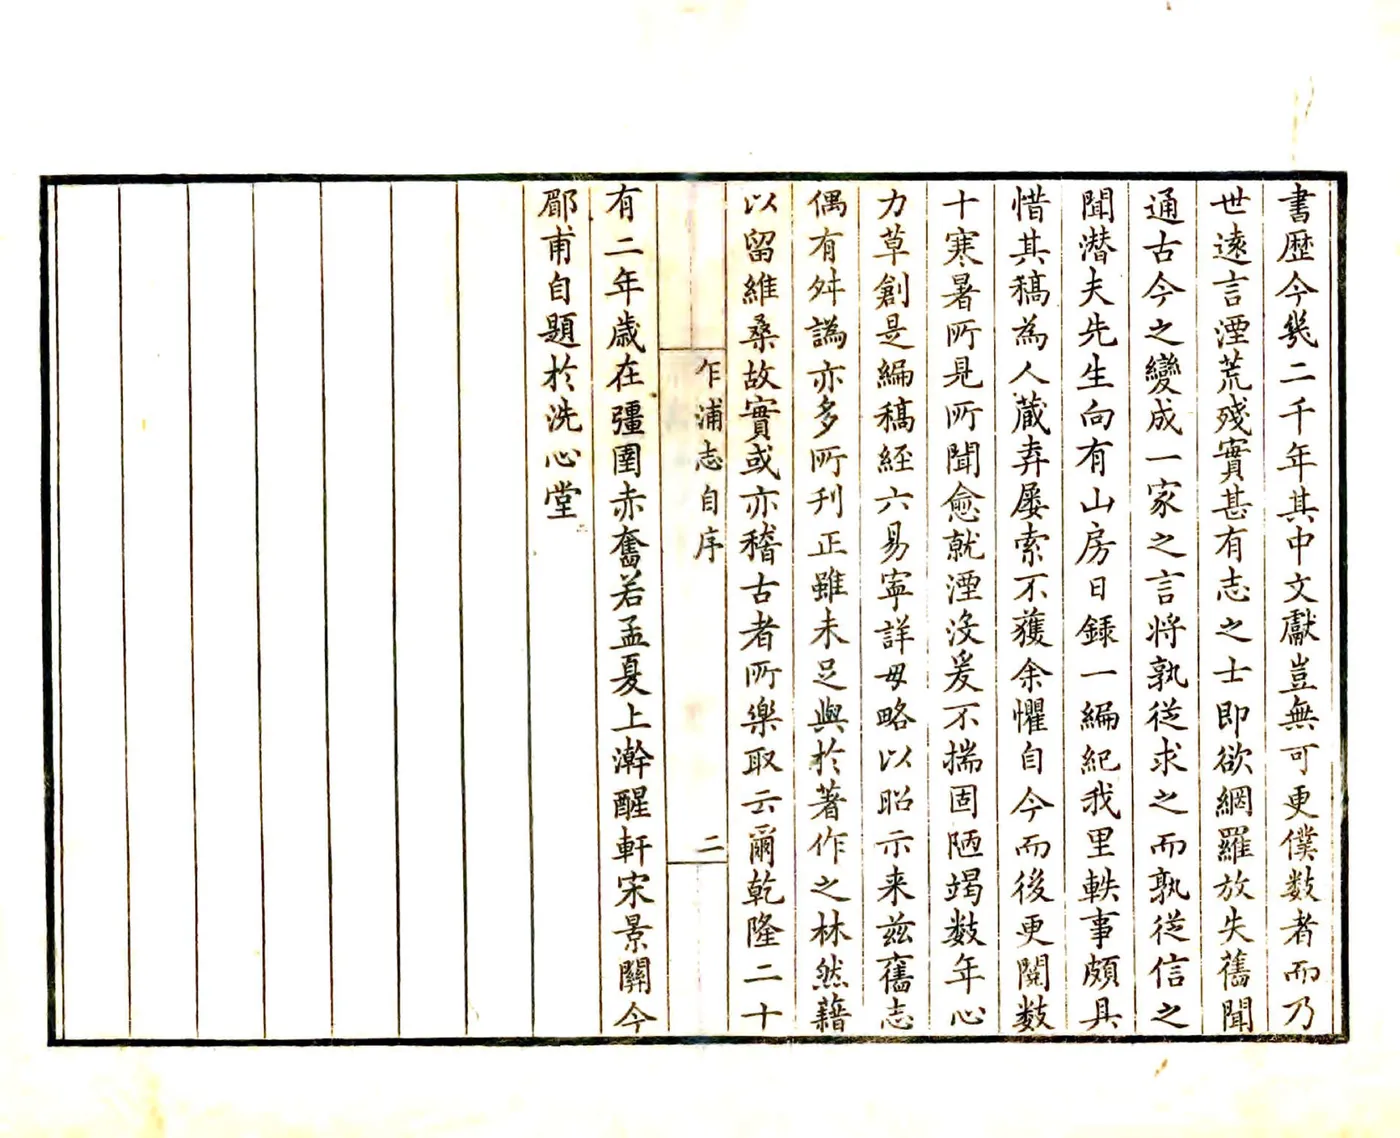 書歴今幾二千年其中文獻豈無可更僕数者而乃
世逺言湮荒殘實甚有志之士即欲網羅放失舊聞
通古今之變成一家之言将孰従求之而孰従信之
聞潜夫先生向有山房日録一編紀我里軼事頗具
惜其稿為人蔵弆屡索不獲余懼自今而後更閲数
十寒暑所見所聞愈就湮没爰不揣固陋竭数年心
力草創是編稿経六易寧詳毋略以昭示来兹舊志
偶有舛譌亦多所刋正雖未足與於著作之林然藉
以留維桑故實或亦稽古者所樂取云爾乾隆二十
乍浦志自序
二
有二年歳在彊圉赤奮若孟夏上澣醒軒宋景關今
郿甫自題於洗心堂